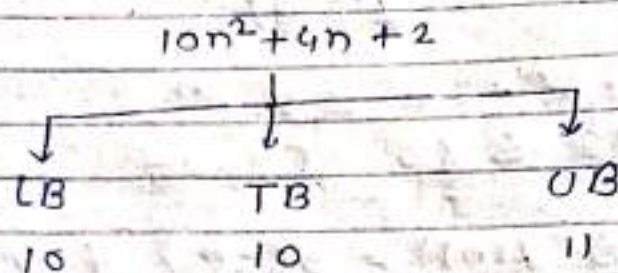 10n² + 4n + 2
LB TB UB
10 10 11